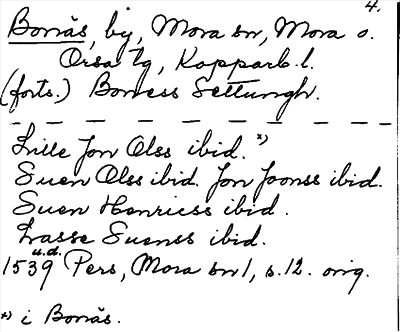 4.
Bonäs, by, Mora sn, Mora o.
Orsa tg, Kopparb. l.
(forts.) Boness Settungh.
Lille Jon Olss ibid. x)
Suen Olss ibid. Jon Joonss ibid.
Suen Henricss ibid.
Lasse Suenss ibid.
u.d.
1539 Pers, Mora sn 1, s. 12. orig.
x) i Bonäs.